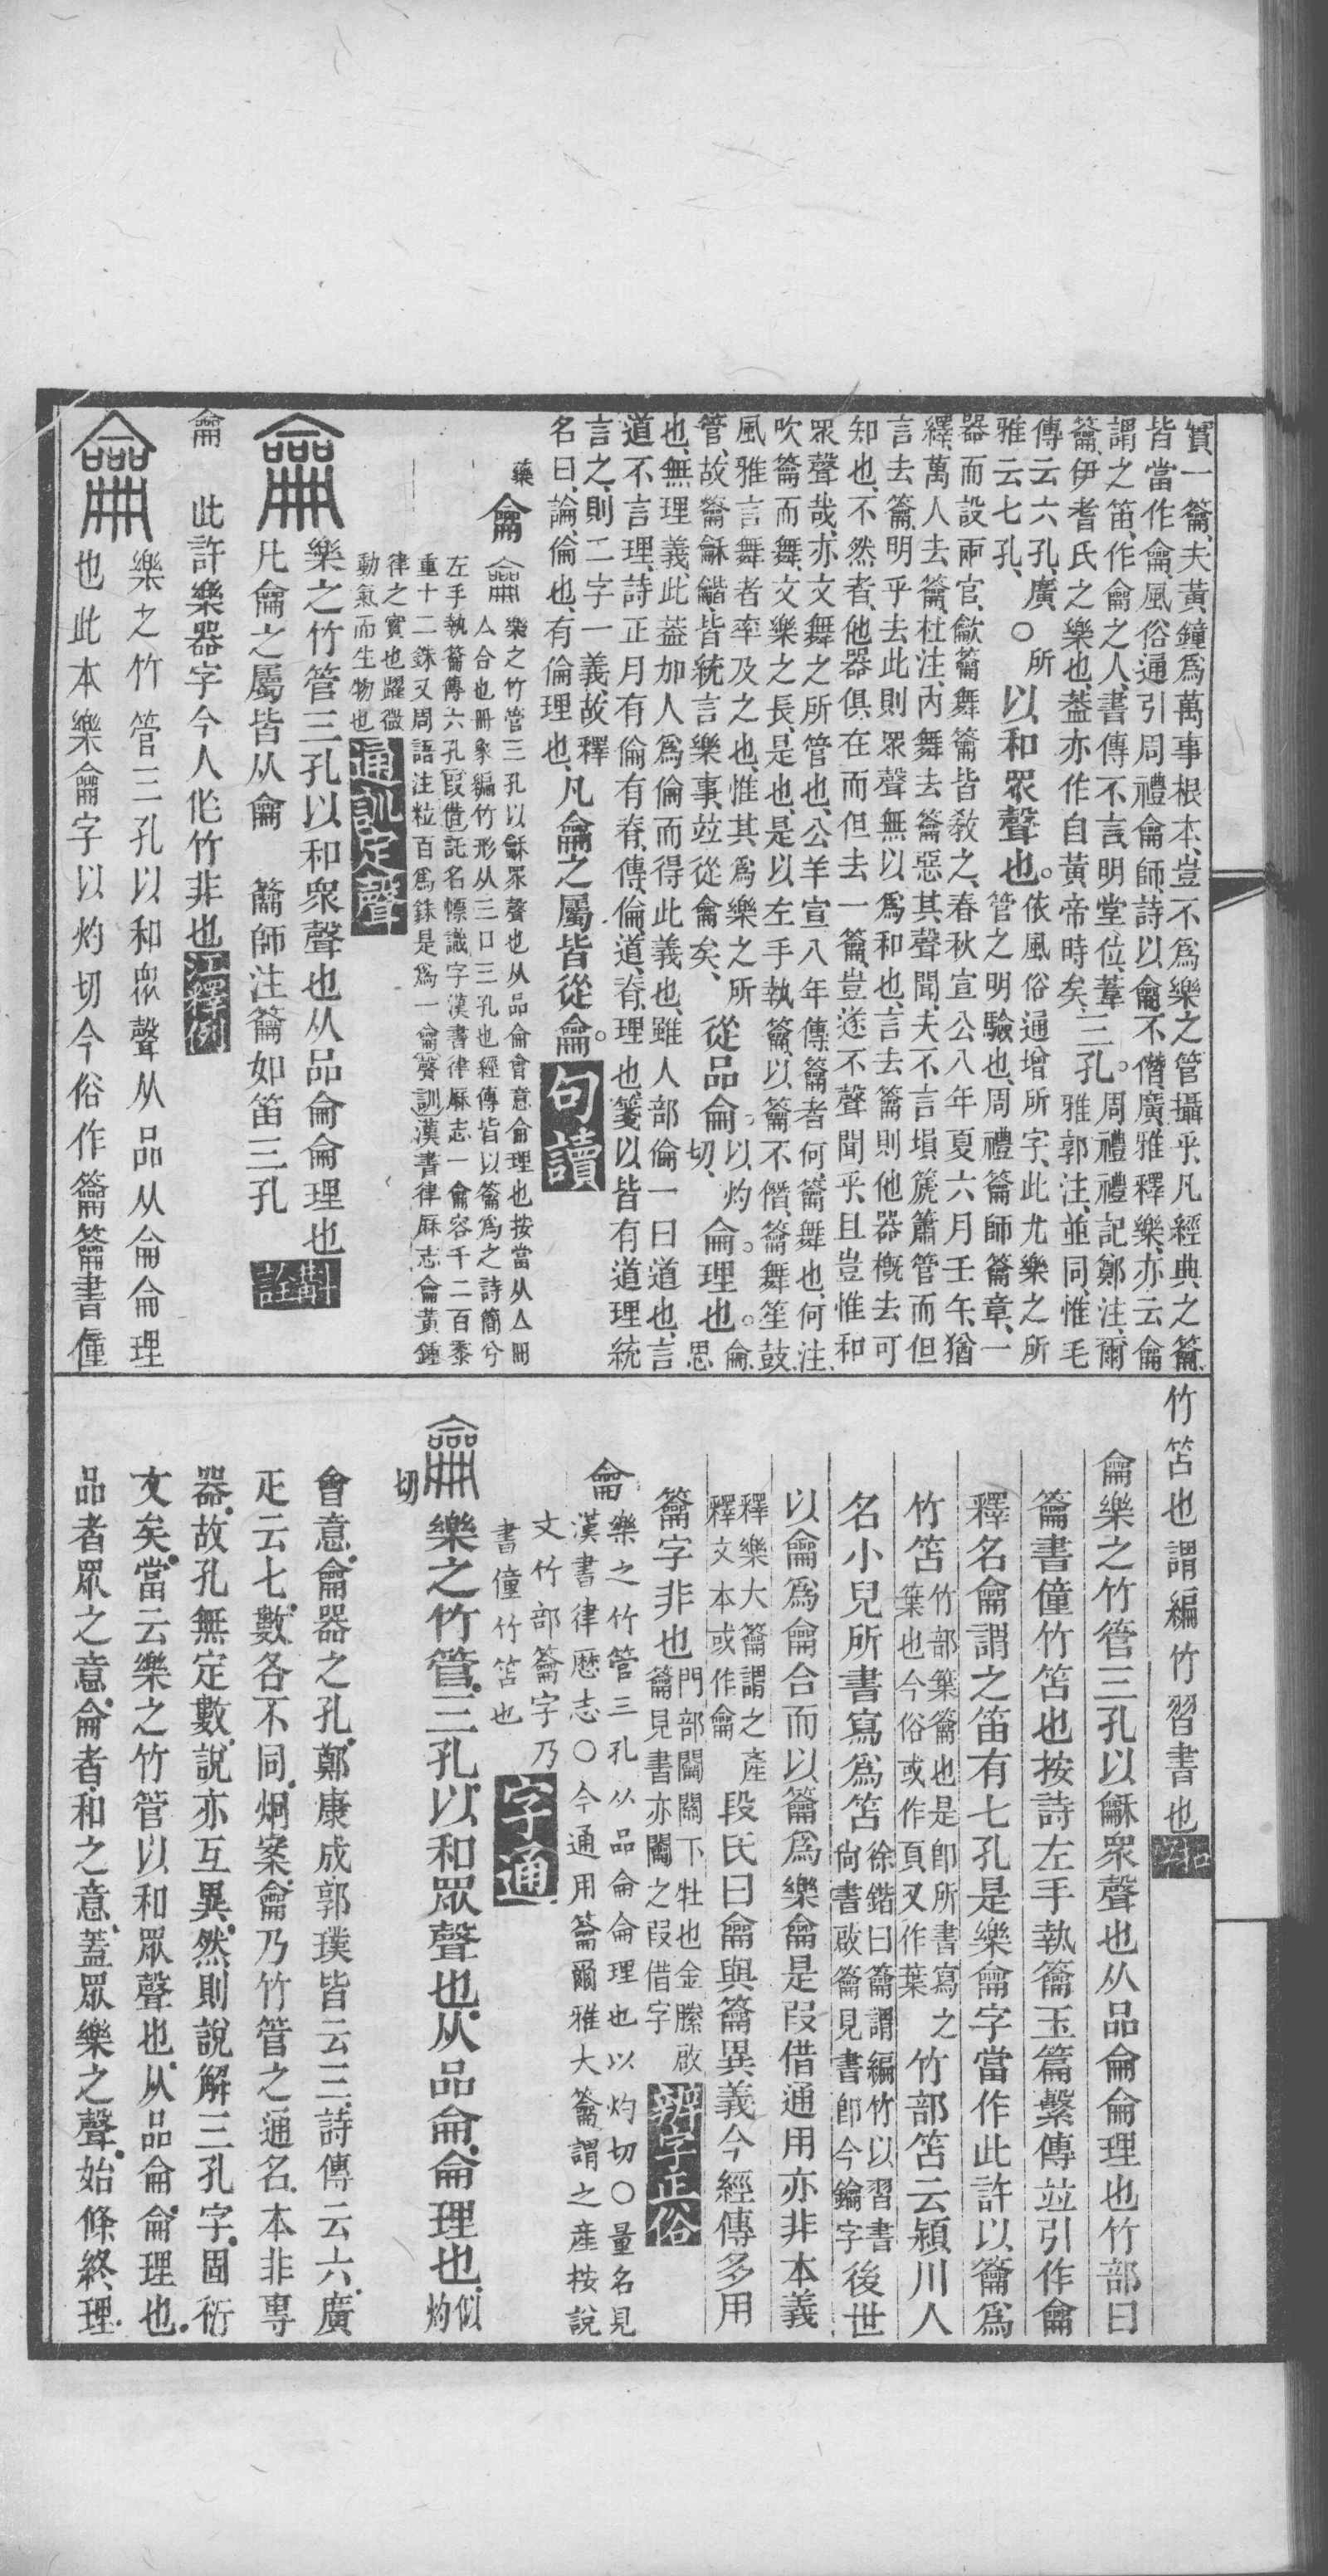 實一籥、夫黃鐘爲萬事根本、豈不爲樂之管攝乎、凡經典之籥、
皆當作龠、風俗通引周禮龠師、詩以龠不僭、廣雅釋樂、亦云龠
謂之笛、作龠之人、書傳不言、明堂位、葦
籥、伊耆氏之樂也、蓋亦作自黃帝時矣、
三孔。
周禮禮記鄭注、爾
雅郭注、並同、惟毛
傳云六孔、廣
雅云七孔、
○所
以和眾聲也。
依風俗通增所字、此尤樂之所
管之明驗也、周禮籥師籥章、一
器而設兩官、龡籥舞籥皆敎之、春秋宣公八年夏六月壬午、猶
繹、萬人去籥、杜注、內舞去籥惡其聲聞、夫不言塤篪簫管而但
言去籥、明乎去此則眾聲無以爲和也、言去籥則他器概去可
知也、不然者、他器俱在而但去一籥、豈遂不聲聞乎、且豈惟和
眾聲哉、亦文舞之所管也、公羊宣八年傳、籥者何、籥舞也、何注、
吹籥而舞、文樂之長、是也、是以左手執籥、以籥不僭、籥舞笙鼓、
風雅言舞者率及之也、惟其爲樂之所
管、故龤龢龤、皆統言樂事、竝從龠矣、
從品侖。
以灼
切、
侖理也。
侖
思
也、無理義、此蓋加人爲倫而得此義也、雖人部倫一曰道也、言
道不言理、詩正月有倫有脊、傳、倫、道、脊、理也、箋以皆有道理統
言之、則二字一義、故釋
名曰、論、倫也、有倫理也、
凡龠之屬皆從龠。
句讀
藥
龠
樂之竹管三孔以龢眾聲也从品侖會意侖理也按當从亼冊
亼合也冊象編竹形从三口三孔也經傳皆以籥爲之詩簡兮
左手執籥傳六孔叚借託名幖識字漢書律厤志一龠容千二百黍
重十二銖又周語注粒百爲銖是爲一龠聲訓漢書律厤志龠黃鍾
律之實也躍微
動氣而生物也
通訓定聲
樂之竹管三孔以和眾聲也从品侖侖理也
凡龠之屬皆从龠
籥師注籥如笛三孔
斠詮
龠
此許樂器字今人作竹非也
江釋例
樂之竹管三孔以和眾聲从品从侖侖理
也此本樂龠字以灼切今俗作籥籥書僮
竹笘也謂編竹習書也
龠樂之竹管三孔以龢眾聲也从品侖侖理也竹部曰
籥書僮竹笘也按詩左手執籥玉篇繫傳竝引作龠
釋名龠謂之笛有七孔是樂龠字當作此許以籥爲
竹笘
竹部䈎籥也是卽所書寫之
葉也今俗或作頁又作葉
竹部笘云潁川人
名小兒所書寫爲笘
徐鍇曰籥謂編竹以習書
尙書啟籥見書卽今鑰字
後世
以龠爲龠合而以籥爲樂龠是叚借通用亦非本義
釋樂大籥謂之產
釋文本或作龠
段氏曰龠與籥異義今經傳多用
籥字非也
門部闟關下牡也金縢啟
籥見書亦闟之叚借字
辨字正俗
龠
樂之竹管三孔从品侖侖理也以灼切○量名見
漢書律厯志○今通用籥爾雅大籥謂之產按說
文竹部籥字乃
書僮竹笘也
字通
樂之竹管三孔以和眾聲也从品侖侖理也
似灼
切
會意龠器之孔鄭康成郭璞皆云三詩傳云六廣
疋云七數各不同炯案龠乃竹管之通名本非專
器故孔無定數說亦互異然則說解三孔字固衍
文矣當云樂之竹管以和眾聲也从品侖侖理也
品者眾之意侖者和之意蓋眾樂之聲始條終理